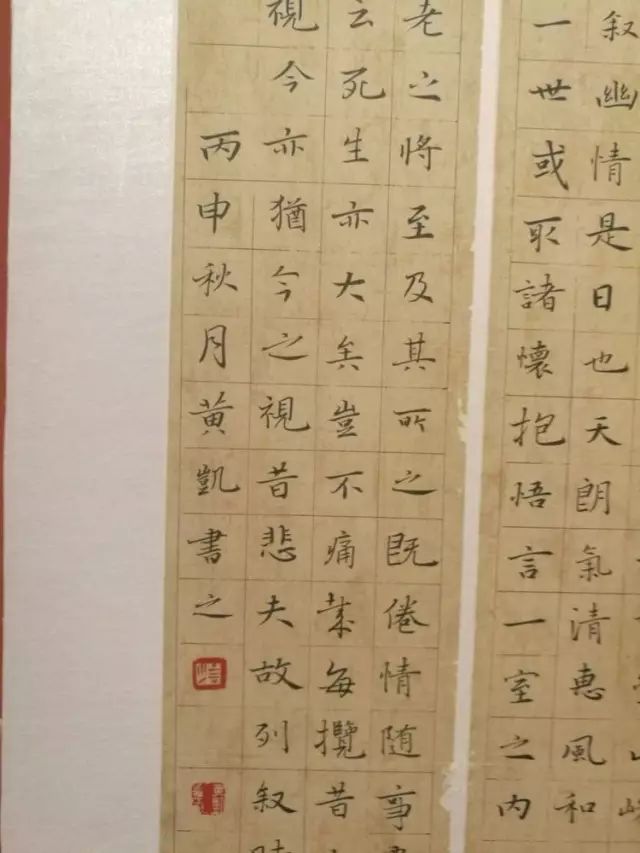 叙幽情是日也天朗氣清恵風和
一世或取諸懷抱悟言一室之内
老之将至及其所之既倦情随事
云死生亦大矣豈不痛哉每攬昔
視今亦猶今之視昔悲夫故列叙
丙申秋月黄凱書之